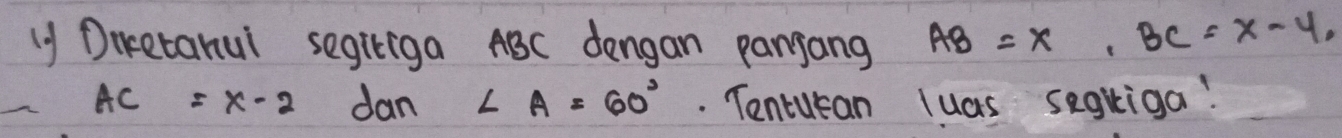 1) Diketahui segitiga ABC dengan panjang AB = x , BC = x - 4,
AC = x - 2 dan ∠ A = 60° . Tentukan luas segitiga!